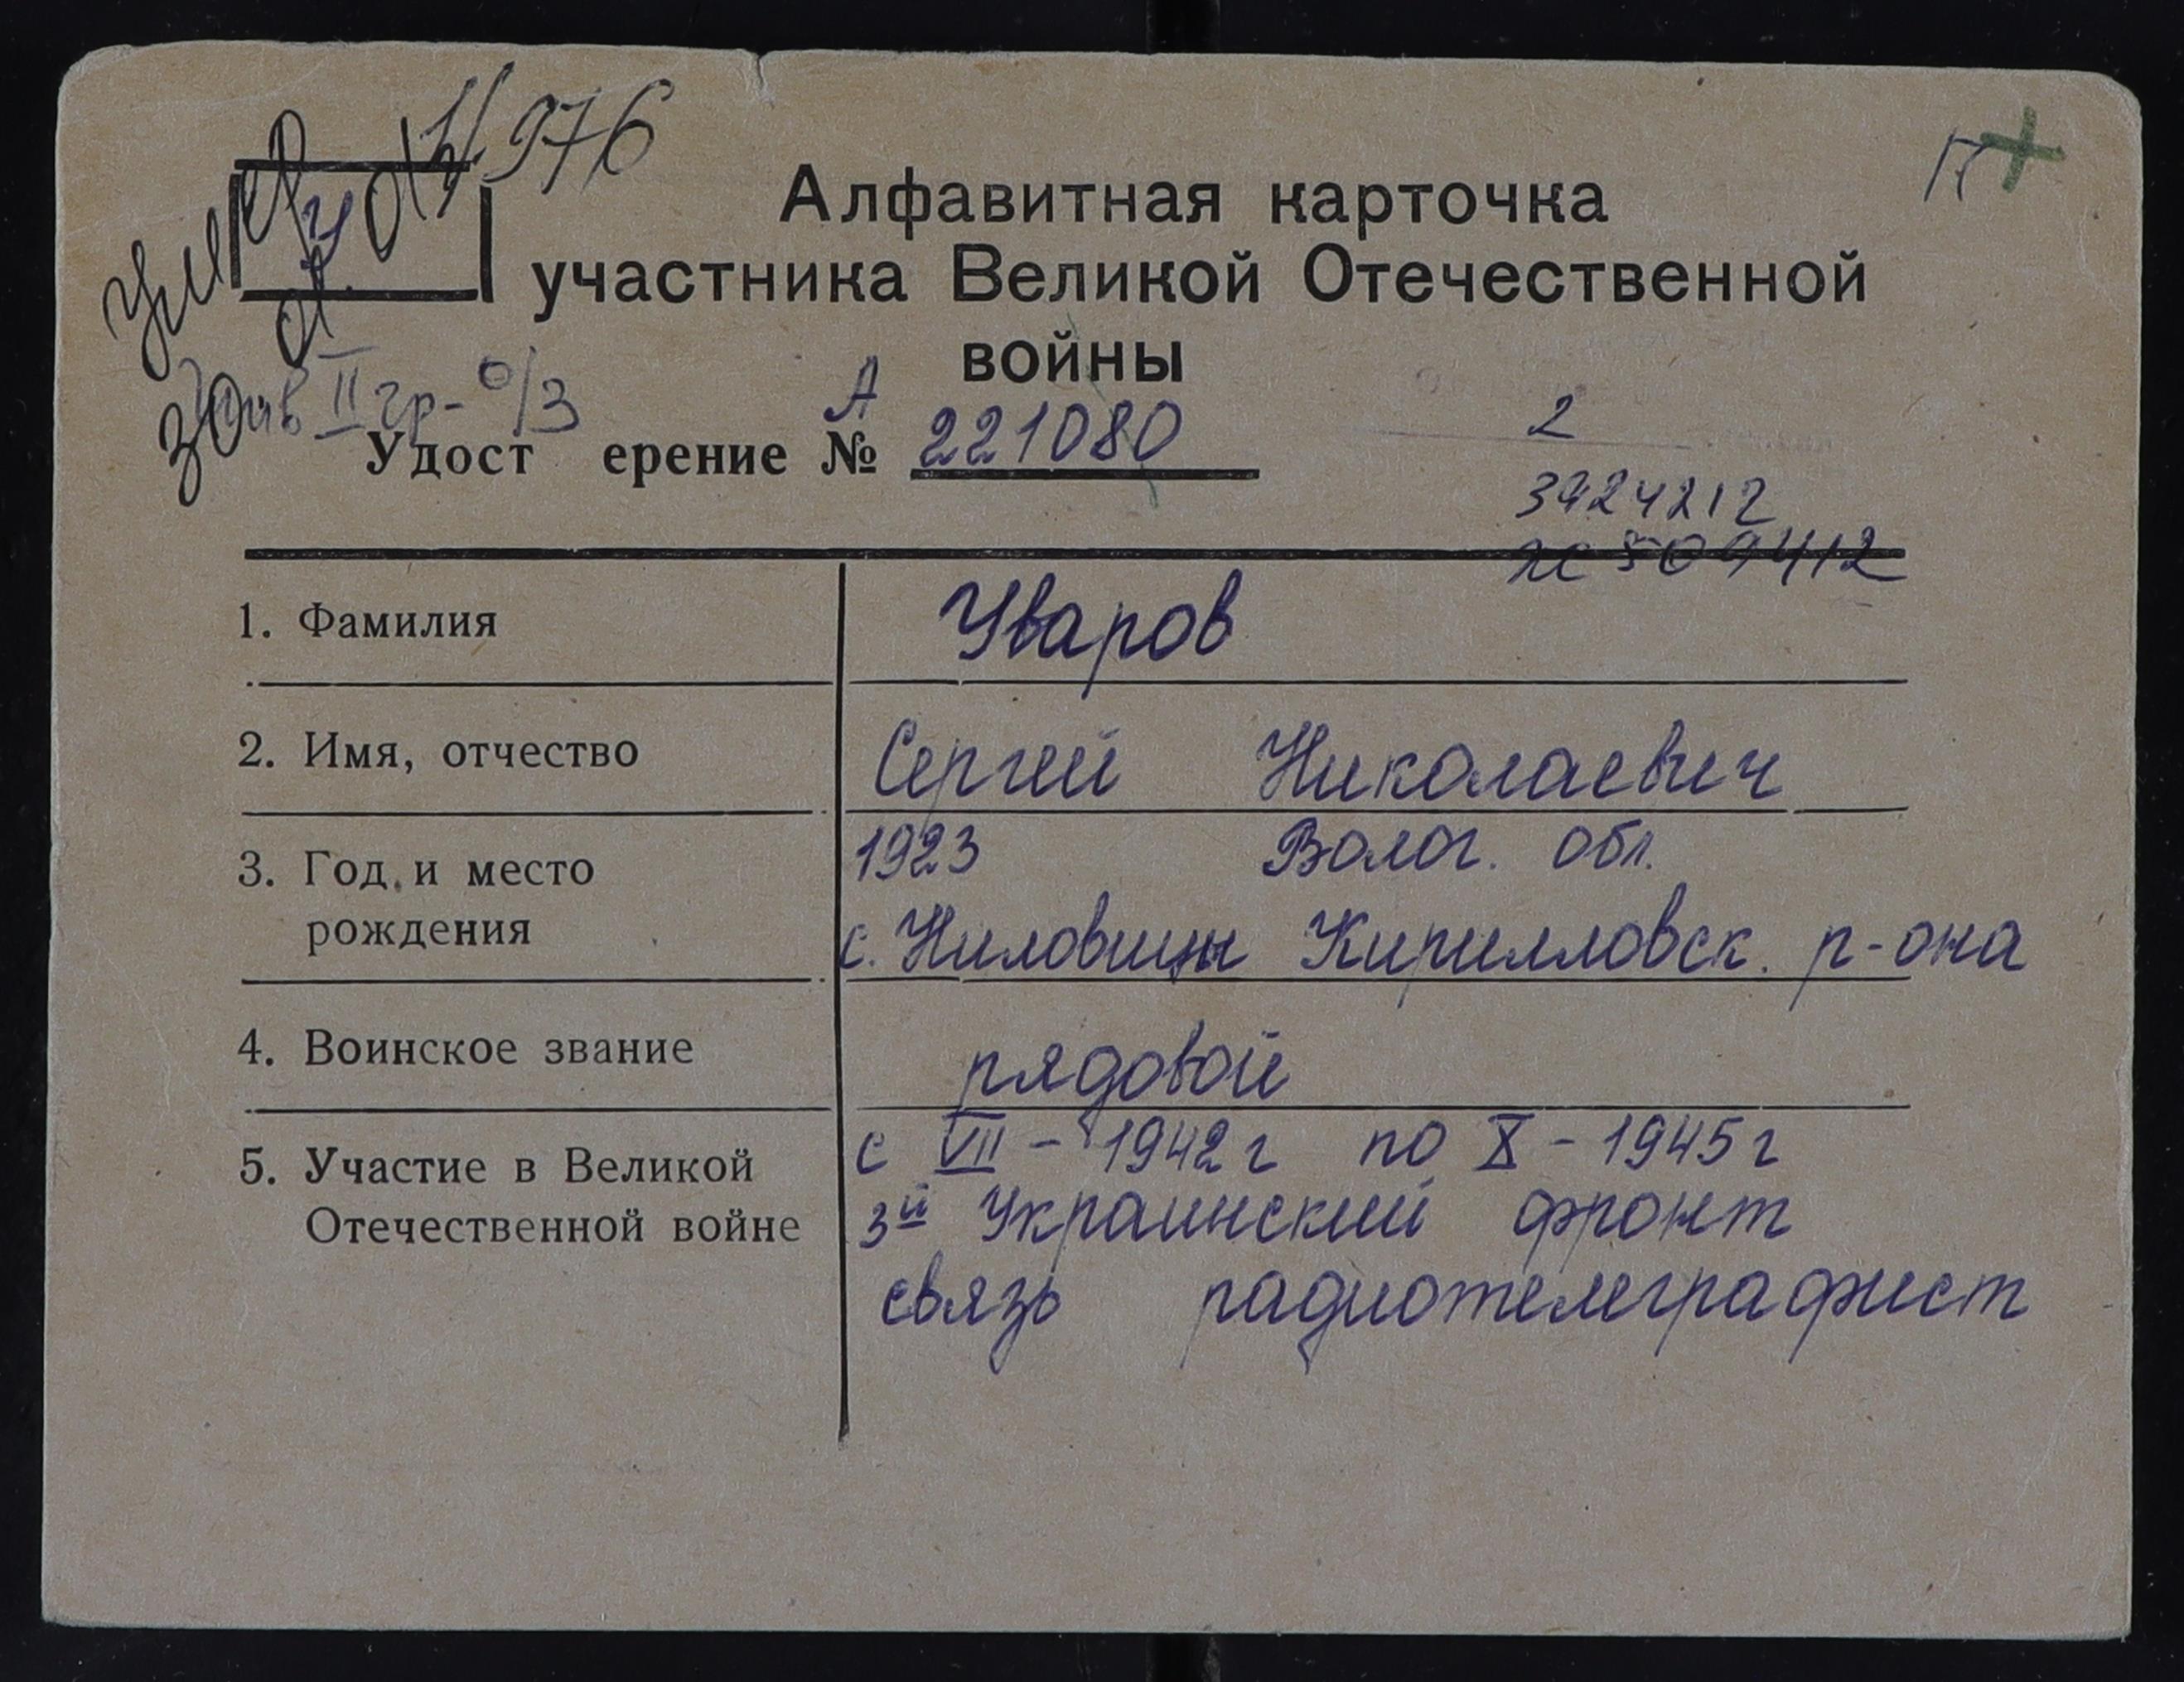 Умер
У
976
17
Алфавитная карточка
участника Великой Отечественной
войны
Инв II гр- о/з
А
2
Удост ерение № 221080
3424212
509412
1. Фамилия Уваров
2. Имя, отчество Сергей Николаевич
3. Год и место 1923 Волог. обл.
рождения с. Ниловицы Кирилловск. р-она
4. Воинское звание рядовой
5. Участие в Великой с VII - 1942 г по X - 1945 г
Отечественной войне 3й Украинский фронт
связь радиотелеграфист